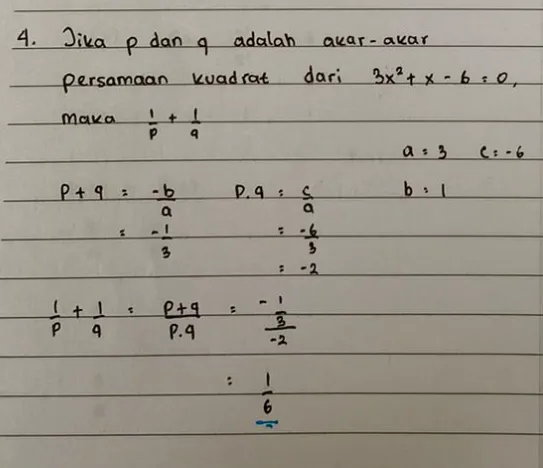 4. Jika p dan q adalah akar-akar
persamaan kuadrat dari 3x² + x - 6 = 0,
maka 1/p + 1/q
a = 3 c = -6
p + q = -b/a p.q = c/a b = 1
= -1/3 = -6/3
= -2
1/p + 1/q = p+q/p.q = -1/3/-2
= 1/6